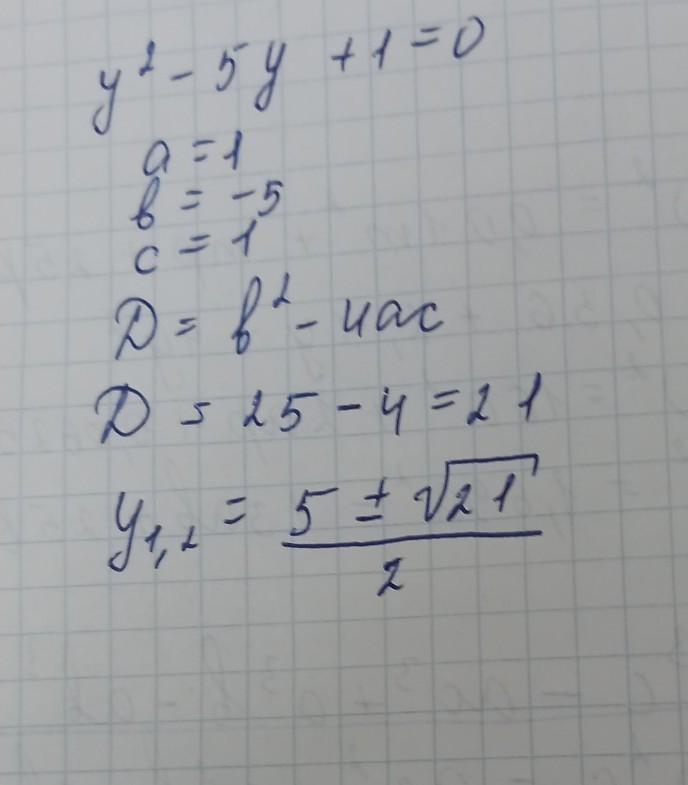 y² - 5y + 1 = 0
a = 1
в = -5
c = 1
D = в² - 4ac
D = 25 - 4 = 21
y₁,₂ = (5 ± √21) / 2